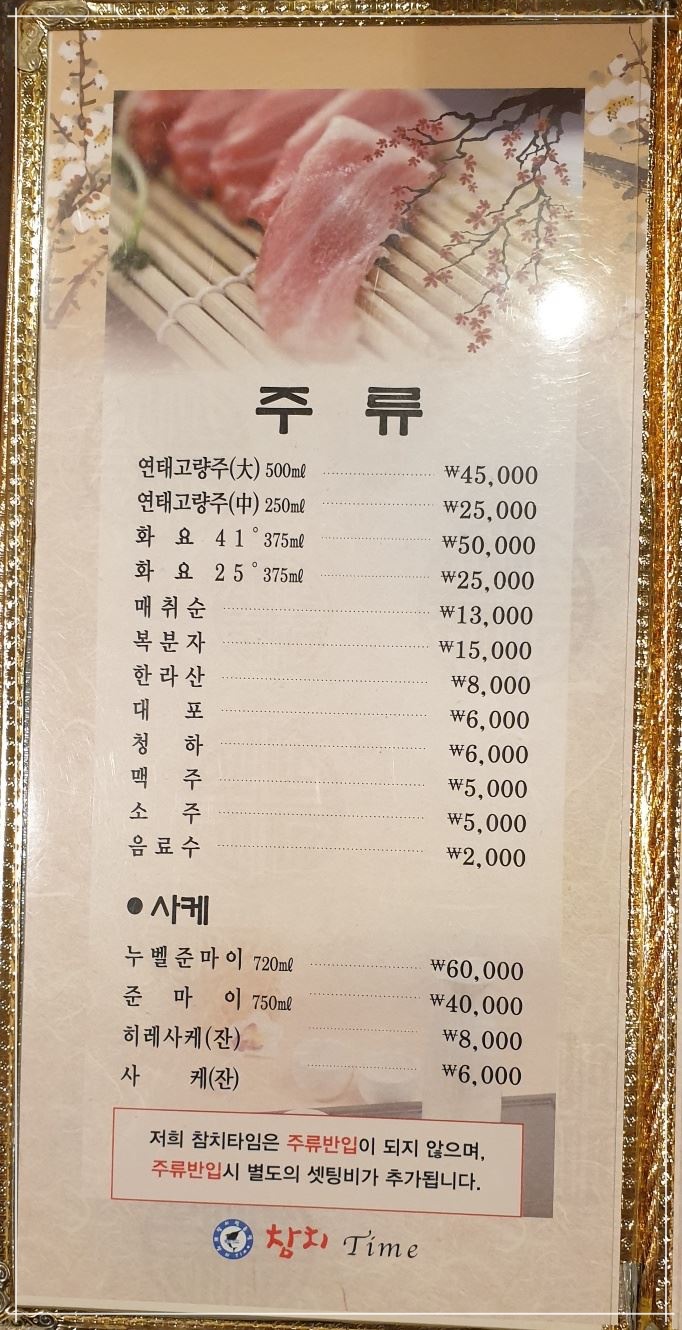 주 류
연태고량주(大) 500㎖ ₩45,000
연태고량주(中) 250㎖ ₩25,000
화 요 41° 375㎖ ₩50,000
화 요 25° 375㎖ ₩25,000
매취순 ₩13,000
복분자 ₩15,000
한라산 ₩8,000
대 포 ₩6,000
청 하 ₩6,000
맥 주 ₩5,000
소 주 ₩5,000
음료수 ₩2,000
●사케
누벨준마이 720㎖ ₩60,000
준 마 이 750㎖ ₩40,000
히레사케(잔) ₩8,000
사 케(잔) ₩6,000
저희 참치타임은 주류반입이 되지 않으며,
주류반입시 별도의 셋팅비가 추가됩니다.
참치 Time